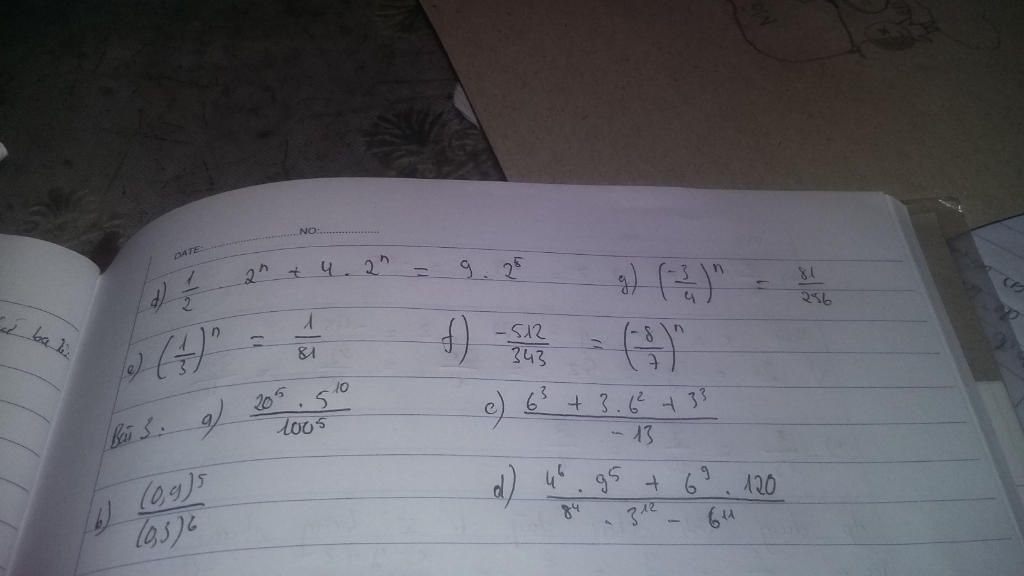 DATE:............................NO:..................
d) 1/2 . 2ⁿ + 4 . 2ⁿ = 9 . 2⁵ g) (-3/4)ⁿ = 81/256
e) (1/3)ⁿ = 1/81 f) -512/343 = (-8/7)ⁿ
Bài 3 : a) 20⁵ . 5¹⁰ / 100⁵ c) 6³ + 3 . 6² + 3³ / -13
b) (0,9)⁵ / (0,3)⁶ d) 4⁶ . 9⁵ + 6⁹ . 120 / 8⁴ . 3¹² - 6¹¹